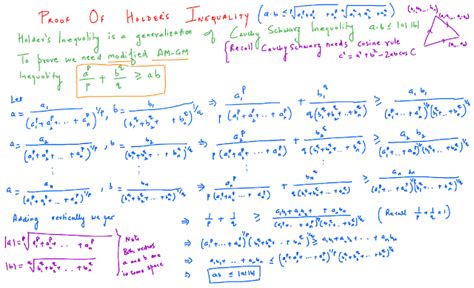 PROOF OF HOLDER'S INEQUALITY (a·b ≤ √(a₁²+a₂²+...+aₙ²) √(b₁²+b₂²+...+bₙ²))
Holder's Inequality is a generalization of Cauchy Schwarz Inequality a·b ≤ |a||b|
To prove we need modified AM-GM
Inequality a^p/p + b^q/q ≥ ab
{Recall Cauchy Schwarz needs cosine rule
c² = a² + b² - 2ab cos C
Let
a = a₁/(a₁^p + a₂^p + ... + aₙ^p)^(1/p), b = b₁/(b₁^q + b₂^q + ... + bₙ^q)^(1/q) ⇒ a₁^p/(p(a₁^p + a₂^p + ... + aₙ^p)) + b₁^q/(q(b₁^q + b₂^q + ... + bₙ^q)) ≥ a₁b₁/((a₁^p + a₂^p + ... + aₙ^p)^(1/p) (b₁^q + b₂^q + ... + bₙ^q)^(1/q))
a = a₂/(a₁^p + a₂^p + ... + aₙ^p)^(1/p), b = b₂/(b₁^q + b₂^q + ... + bₙ^q)^(1/q) ⇒ a₂^p/(p(a₁^p + a₂^p + ... + aₙ^p)) + b₂^q/(q(b₁^q + b₂^q + ... + bₙ^q)) ≥ a₂b₂/((a₁^p + a₂^p + ... + aₙ^p)^(1/p) (b₁^q + b₂^q + ... + bₙ^q)^(1/q))
a = aₙ/(a₁^p + a₂^p + ... + aₙ^p)^(1/p), b = bₙ/(b₁^q + b₂^q + ... + bₙ^q)^(1/q) ⇒ aₙ^p/(p(a₁^p + a₂^p + ... + aₙ^p)) + bₙ^q/(q(b₁^q + b₂^q + ... + bₙ^q)) ≥ aₙbₙ/((a₁^p + a₂^p + ... + aₙ^p)^(1/p) (b₁^q + b₂^q + ... + bₙ^q)^(1/q))
Adding vertically we get ⇒ 1/p + 1/q ≥ a₁b₁ + a₂b₂ + ... + aₙbₙ/((a₁^p + a₂^p + ... + aₙ^p)^(1/p) (b₁^q + b₂^q + ... + bₙ^q)^(1/q)) (Recall 1/p + 1/q = 1)
|a| = ᵖ√(a₁^p + a₂^p + ... + aₙ^p)
|b| = ᵠ√(b₁^q + b₂^q + ... + bₙ^q)
Note
Both vectors
a and b are
in same space
⇒ (a₁^p + a₂^p + ... + aₙ^p)^(1/p) (b₁^q + b₂^q + ... + bₙ^q)^(1/q) ≥ a₁b₁ + a₂b₂ + ... + aₙbₙ
⇒ a₁b₁ + ... + aₙbₙ ≤ (a₁^p + a₂^p + ... + aₙ^p)^(1/p) (b₁^q + b₂^q + ... + bₙ^q)^(1/q)
⇒ ab ≤ |a||b|